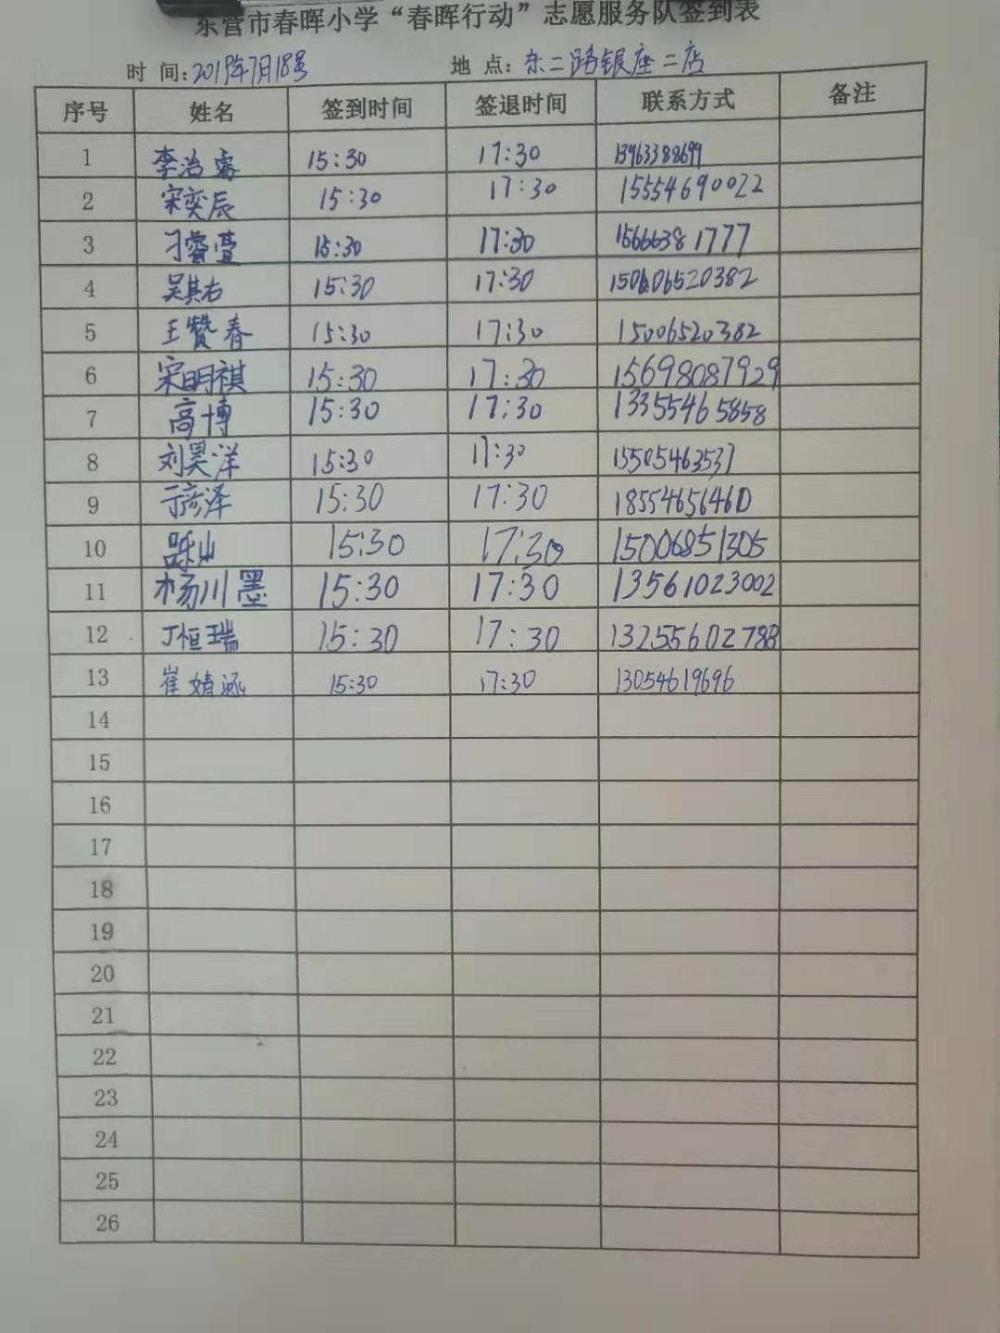 东营市春晖小学“春晖行动”志愿服务队签到表
时 间:2019年7月18号 地 点:东二路银座二店
序号 姓名 签到时间 签退时间 联系方式 备注
1 李治睿 15:30 17:30 13963388699
2 宋奕辰 15:30 17:30 15554690022
3 刁睿萱 15:30 17:30 15666381777
4 吴其右 15:30 17:30 1506520382
5 王赞春 15:30 17:30 15006520382
6 宋明祺 15:30 17:30 15698087929
7 高博 15:30 17:30 13355465858
8 刘昊洋 15:30 17:30 15505463537
9 于彦泽 15:30 17:30 18554656460
10 15:30 17:30 15006851305
11 杨川墨 15:30 17:30 13561023002
12 丁恒瑞 15:30 17:30 13255602788
13 崔婧涵 15:30 17:30 13054619696
14
15
16
17
18
19
20
21
22
23
24
25
26